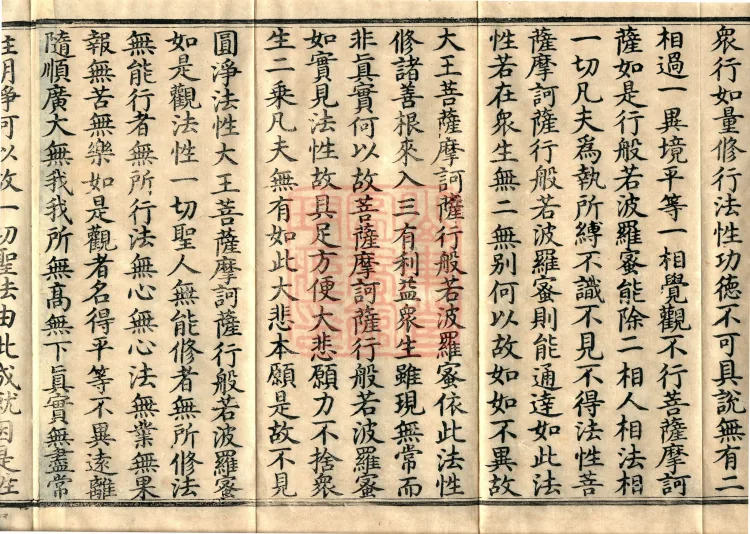 衆行如量修行法性功德不可具說無有二
相過一異境平等一相覺觀不行菩薩摩訶
薩如是行般若波羅蜜能除二相人相法相
一切凡夫爲執所縛不識不見不得法性菩
薩摩訶薩行般若波羅蜜則能通達如此法
性若在衆生無二無别何以故如如不異故
大王菩薩摩訶薩行般若波羅蜜依此法性
修諸善根來入三有利益衆生雖現無常而
非眞實何以故菩薩摩訶薩行般若波羅蜜
如實見法性故具足方便大悲願力不捨衆
生二乘凡夫無有如此大悲本願是故不見
圓淨法性大王菩薩摩訶薩行般若波羅蜜
如是觀法性一切聖人無能修者無所修法
無能行者無所行法無心無心法無業無果
報無苦無樂如是觀者名得平等不異遠離
隨順廣大無我我所無髙無下眞實無盡常
住明淨可以故一切聖法由此成就因是性